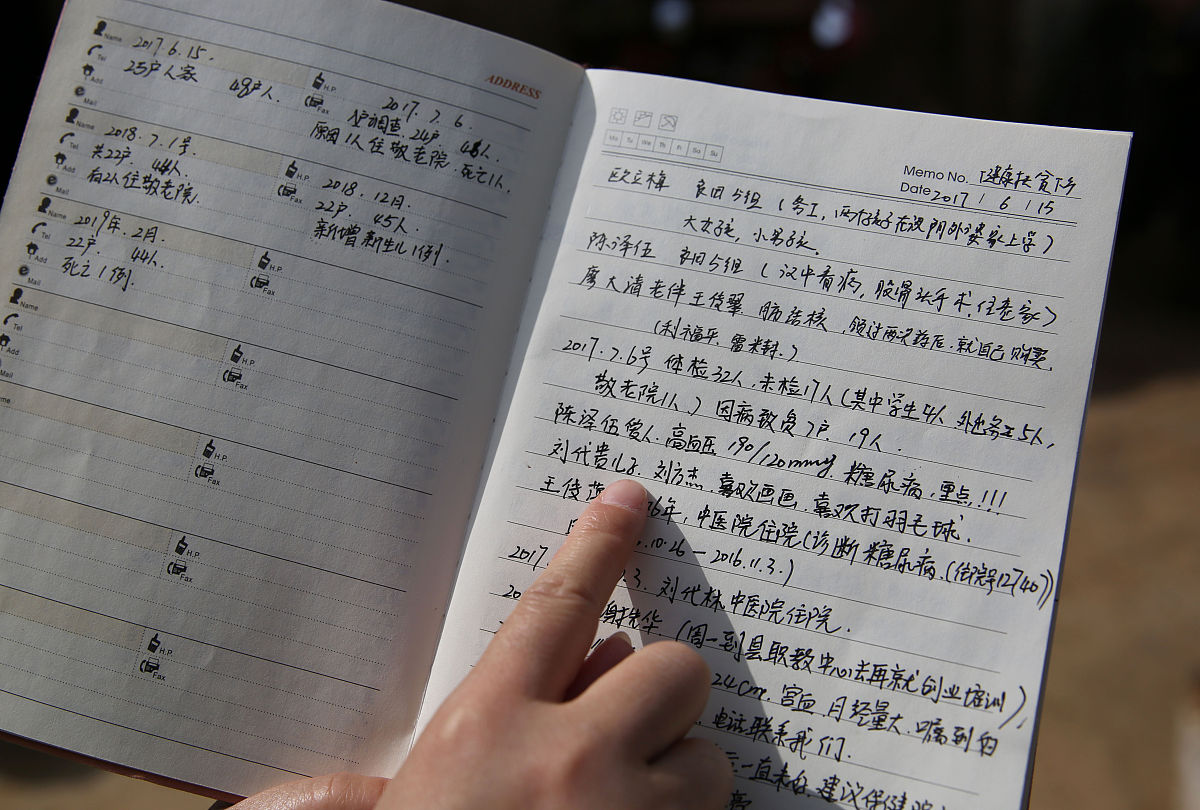 ADDRESS
Name 2017.6.15.
Tel 25户人家 H.P 2017.7.6.
Add 49户人. Fax 入户调查. 24户. 48人.
Mail 原因1人住敬老院. 死亡1人.
Name 2018.7.1号
Tel 共22户. 44人. H.P 2018.12月.
Add 有2人住敬老院. Fax 22户. 45人.
Mail 新增新生儿1例.
Name 2019年.2月.
Tel 22户. 44人. H.P
Add 死亡1例. Fax
Mail
Name
Tel H.P
Add Fax
Mail
H.P
Fax
H.P
Fax
H.P
Fax
Mo Tu We Th Fr Sa Su
Memo No. 健康扶贫
Date 2017 / 6 / 15
欧立梅 5组 (务工, 两个孩子在汉阴外婆家上学)
大女孩, 小男孩.
陈泽伍 5组 (汉中看病, 股骨头手术, 住老家)
廖大清老伴王俊翠 肺结核, 领过两次药后, 就自己购买.
(利福平, 雷米封.)
2017.7.6号 体检32人, 未检17人(其中学生4人 外出务工5人,
敬老院1人) 因病致贫7户. 19人.
陈泽伍爱人. 高血压 190/120mmHg. 糖尿病, 重点, !!!
刘代贵儿子. 刘方杰. 喜欢画画. 喜欢打羽毛球.
王俊 6年, 中医院住院(诊断糖尿病. (住院号12740))
.10.26—2016.11.3.)
2017. .3. 刘代林中医院住院.
20 谢先华 (周一到县职教中心去再就创业培训),
24cm. 宫血, 月经量大. 嘱到白
电话联系我们.
一直未白, 建议保健院